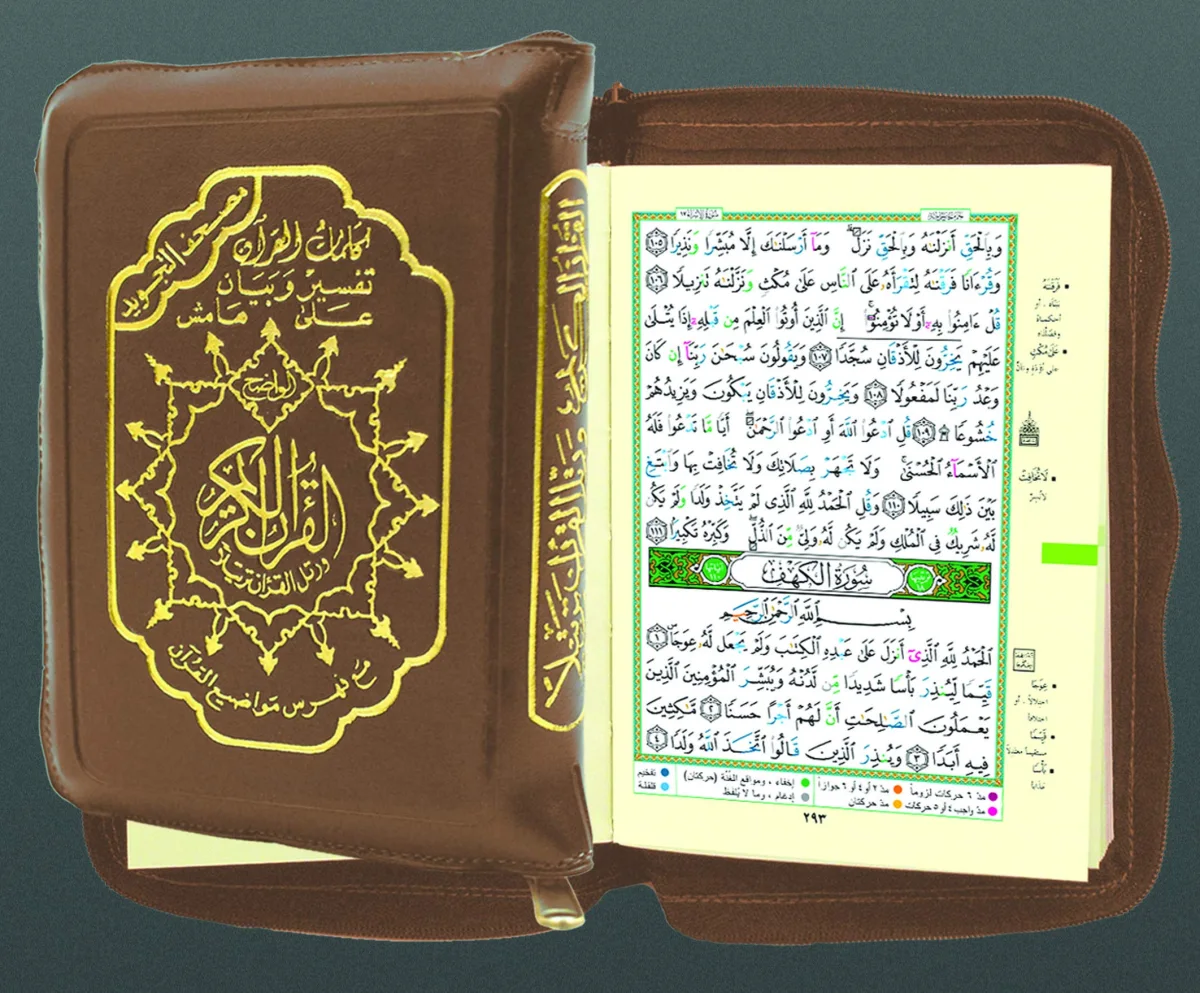 مصحف التجويد
كلمات القرآن
تفسير وبيان
على هامش
القرآن الكريم
ورتل القرآن ترتيلا
مع فهرس مواضيع القرآن
القرآن الكريم ورتل القرآن ترتيلا
سورة الإسراء ١٧
وَبِالْحَقِّ أَنزَلْنَٰهُ وَبِالْحَقِّ نَزَلَ ۗ وَمَآ أَرْسَلْنَٰكَ إِلَّا مُبَشِّرًا وَنَذِيرًا ١٠٥
وَقُرْءَانًا فَرَقْنَٰهُ لِتَقْرَأَهُۥ عَلَى النَّاسِ عَلَىٰ مُكْثٍ وَنَزَّلْنَٰهُ تَنزِيلًا ١٠٦
قُلْ ءَامِنُوا۟ بِهِۦٓ أَوْ لَا تُؤْمِنُوٓا۟ ۚ إِنَّ الَّذِينَ أُوتُوا۟ الْعِلْمَ مِن قَبْلِهِۦٓ إِذَا يُتْلَىٰ
عَلَيْهِمْ يَخِرُّونَ لِلْأَذْقَانِ سُجَّدًا ١٠٧ وَيَقُولُونَ سُبْحَٰنَ رَبِّنَآ إِن كَانَ
وَعْدُ رَبِّنَا لَمَفْعُولًا ١٠٨ وَيَخِرُّونَ لِلْأَذْقَانِ يَبْكُونَ وَيَزِيدُهُمْ
خُشُوعًا ۩ ١٠٩ قُلِ ادْعُوا۟ اللَّهَ أَوِ ادْعُوا۟ الرَّحْمَٰنَ ۖ أَيًّا مَّا تَدْعُوا۟ فَلَهُ
الْأَسْمَآءُ الْحُسْنَىٰ ۚ وَلَا تَجْهَرْ بِصَلَاتِكَ وَلَا تُخَافِتْ بِهَا وَابْتَغِ
بَيْنَ ذَٰلِكَ سَبِيلًا ١١٠ وَقُلِ الْحَمْدُ لِلَّهِ الَّذِى لَمْ يَتَّخِذْ وَلَدًا وَلَمْ يَكُن
لَّهُۥ شَرِيكٌ فِى الْمُلْكِ وَلَمْ يَكُن لَّهُۥ وَلِىٌّ مِّنَ الذُّلِّ ۖ وَكَبِّرْهُ تَكْبِيرًا ١١١
سُورَةُ الْكَهْفِ
بِسْمِ اللَّهِ الرَّحْمَٰنِ الرَّحِيمِ
الْحَمْدُ لِلَّهِ الَّذِىٓ أَنزَلَ عَلَىٰ عَبْدِهِ الْكِتَٰبَ وَلَمْ يَجْعَل لَّهُۥ عِوَجَا ۜ ١
قَيِّمًا لِّيُنذِرَ بَأْسًا شَدِيدًا مِّن لَّدُنْهُ وَيُبَشِّرَ الْمُؤْمِنِينَ الَّذِينَ
يَعْمَلُونَ الصَّٰلِحَٰتِ أَنَّ لَهُمْ أَجْرًا حَسَنًا ٢ مَّٰكِثِينَ
فِيهِ أَبَدًا ٣ وَيُنذِرَ الَّذِينَ قَالُوا۟ اتَّخَذَ اللَّهُ وَلَدًا ٤
فَرَقْنَٰهُ
عَلَىٰ مُكْثٍ
لَا تُخَافِتْ
عِوَجًا
قَيِّمًا
مستقيماً معتدلاً
بَأْسًا
عذاباً
مدّ ٦ حركات لزوماً مدّ ٢ أو ٤ أو ٦ جوازاً إخفاء، ومواقع الغُنَّة (حركتان) تفخيم
مدّ واجب ٤ أو ٥ حركات مدّ حركتان إدغام، وما لا يُلفظ قلقلة
٢٩٣